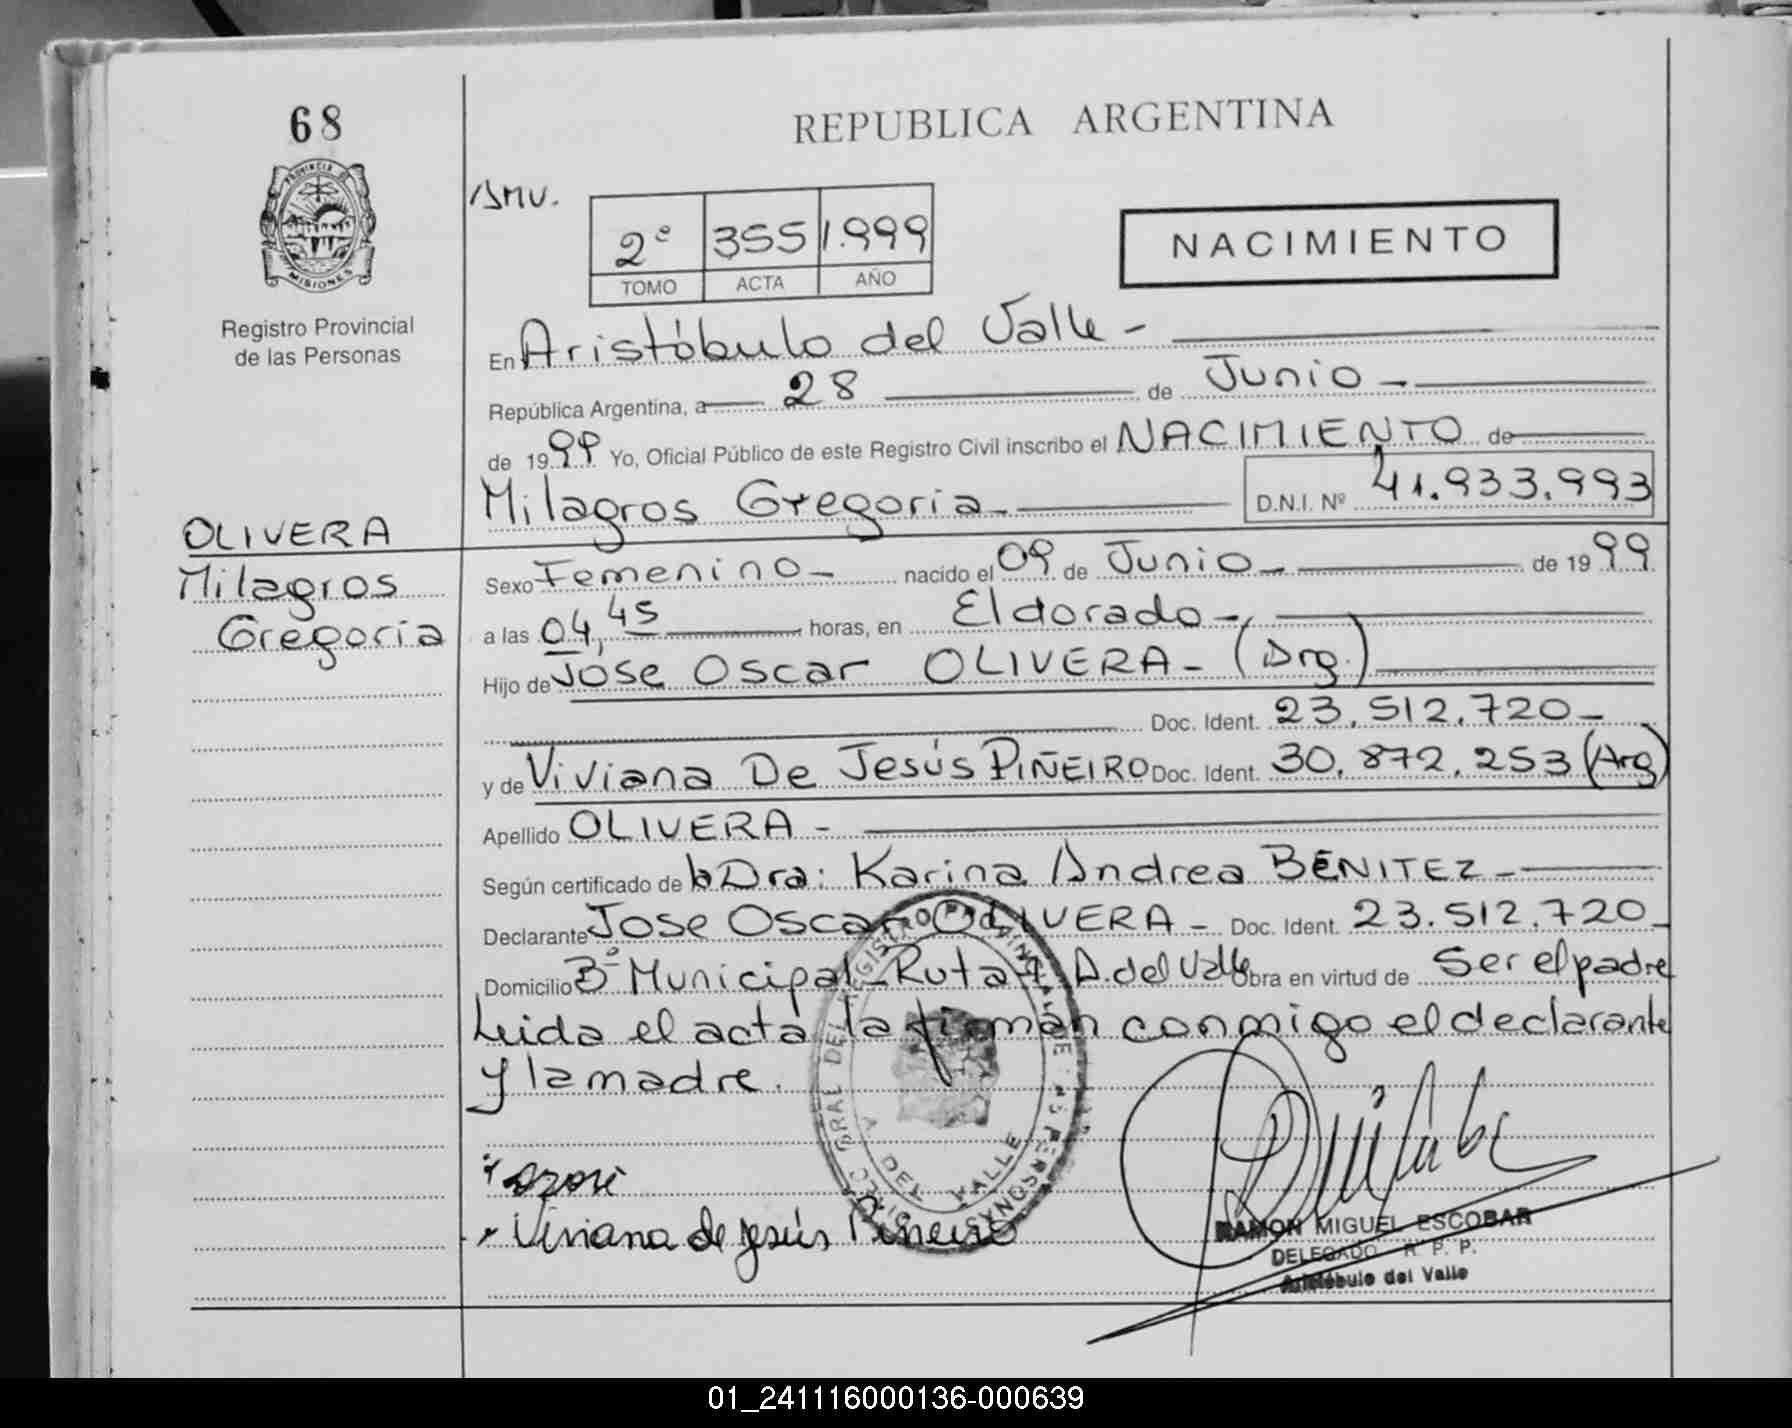 68
REPUBLICA ARGENTINA
PROVINCIA DE
MISIONES
Registro Provincial
de las Personas
AMV.
2º 355 1.999
TOMO ACTA AÑO
NACIMIENTO
En Aristóbulo del Valle -
República Argentina, a 28 de Junio -
de 1999 Yo, Oficial Público de este Registro Civil inscribo el NACIMIENTO de
Milagros Gregoria - D.N.I. Nº 41.933.993
OLIVERA
Milagros
Gregoria
Sexo Femenino - nacido el 09 de Junio - de 1999
a las 04,45 horas, en Eldorado -
Hijo de José Oscar OLIVERA - (Arg.)
Doc. Ident. 23.512.720 -
y de Viviana De Jesús PIÑEIRO Doc. Ident. 30.872.253 (Arg)
Apellido OLIVERA -
Según certificado de la Dra: Karina Andrea BENITEZ -
Declarante Jose Oscar OLIVERA - Doc. Ident. 23.512.720 -
Domicilio Bº Municipal - Ruta A. del Valle Obra en virtud de Ser el padre
Leida el acta la firman conmigo el declarante
y la madre.
Viviana de Jesús Piñeiro
RAMON MIGUEL ESCOBAR
DELEGADO R. P. P.
Aristóbulo del Valle
01_241116000136-000639